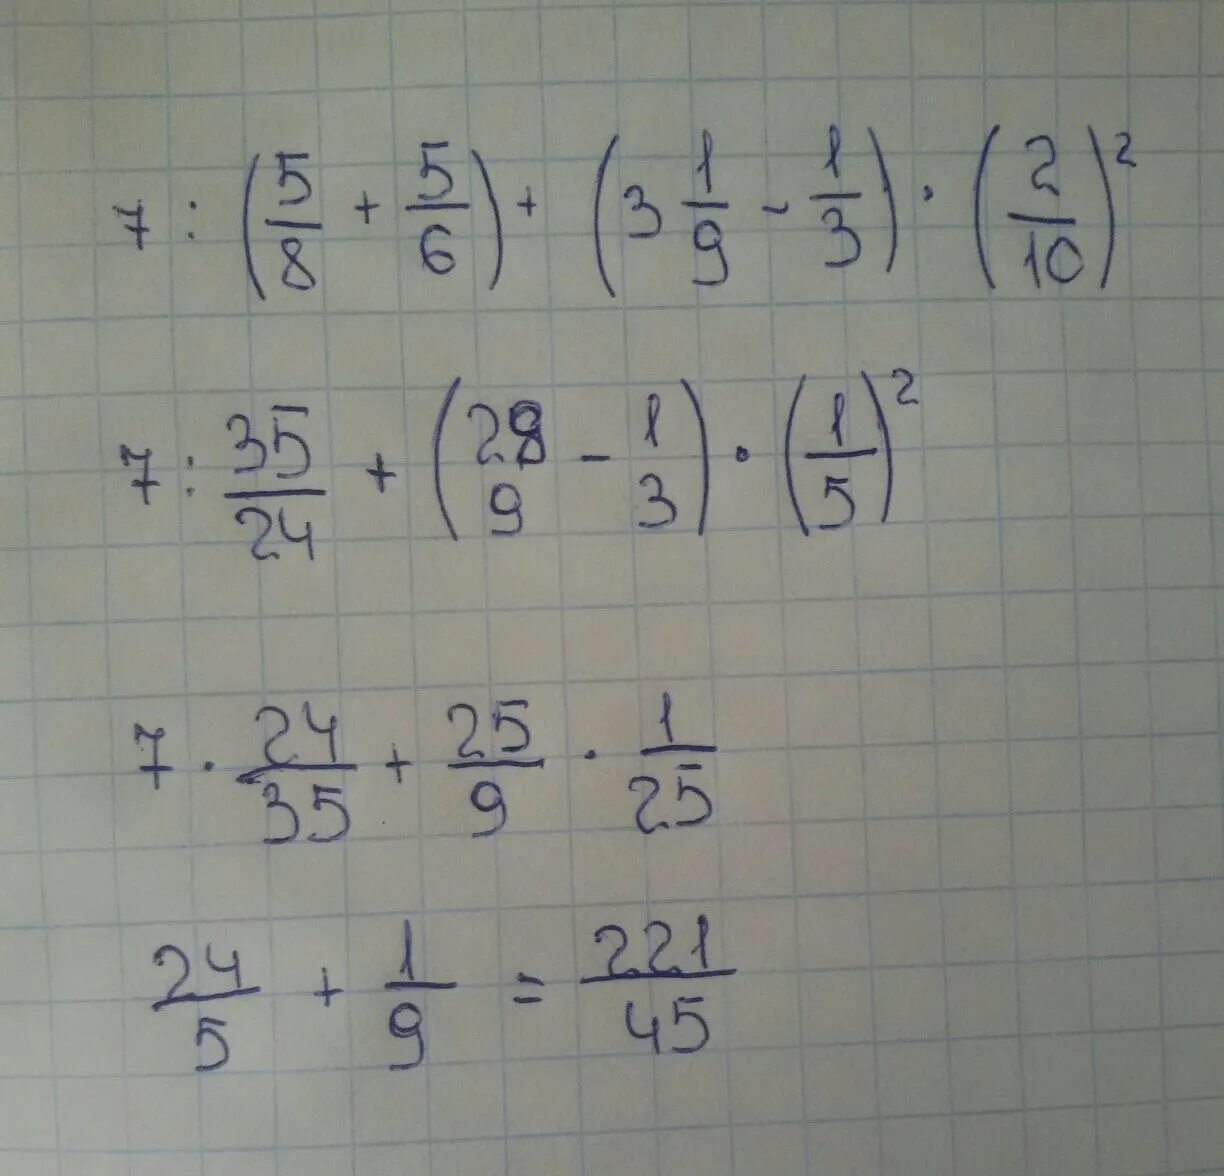 7 : (5/8 + 5/6) + (3 1/9 - 1/3) · (2/10)²
7 : 35/24 + (28/9 - 1/3) · (1/5)²
7 · 24/35 + 25/9 · 1/25
24/5 + 1/9 = 221/45